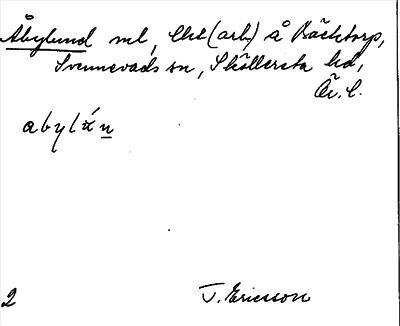 Åbylund ml, lht (arb) å Bäcktorp,
Svennevads sn, Sköllersta hd,
Ör. l.
abylán
2
T. Ericsson